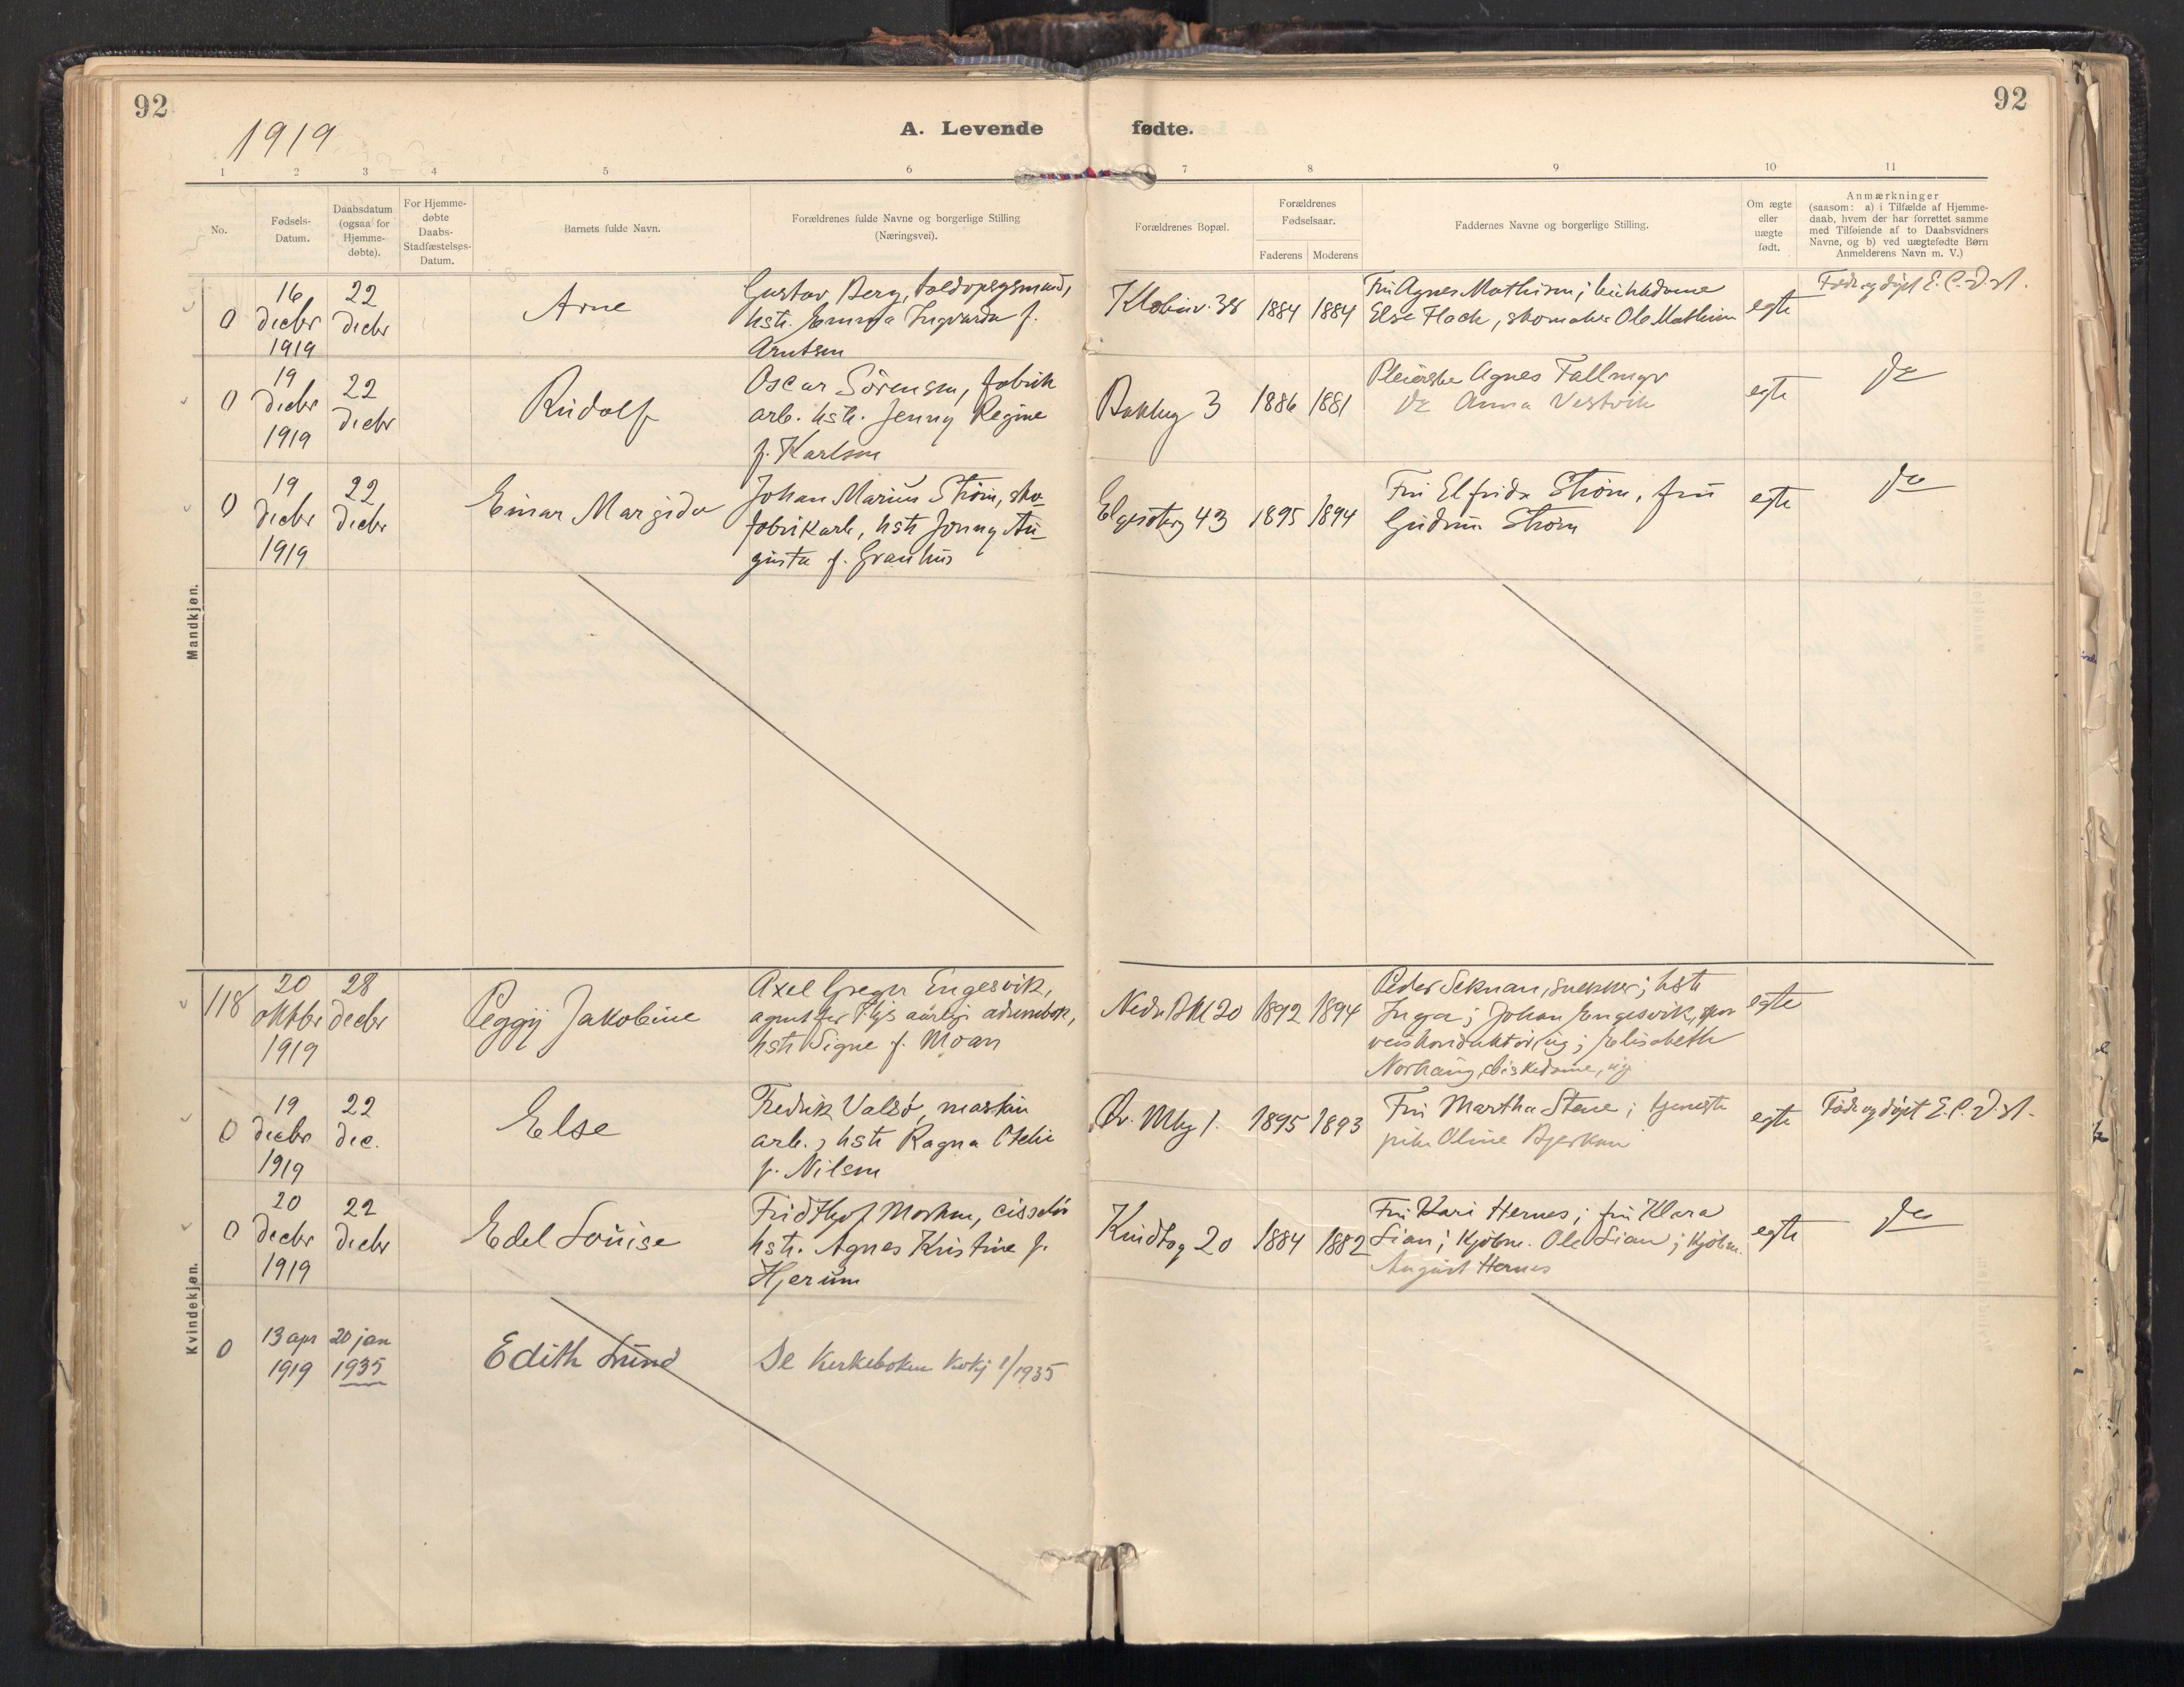 92
92
1919
A. Levende fødte.
1 2 3 4 5 6 7 8 9 10 11
No.
Fødsels-
Datum.
Daabsdatum
(ogsaa for
Hjemme-
døbte).
For Hjemme-
døbte
Daabs-
Stadfæstelses-
Datum.
Barnets fulde Navn.
Forældrenes fulde Navne og borgerlige Stilling
(Næringsvei).
Forældrenes Bopæl.
Forældrenes
Fødselsaar.
Faderens
Moderens
Faddernes Navne og borgerlige Stilling.
Om ægte
eller
uægte
født.
Anmærkninger
(saasom: a) i Tilfælde af Hjemme-
daab, hvem der har forrettet samme
med Tilføiende af to Daabsvidners
Navne, og b) ved uægtefødte Børn
Anmelderens Navn m. V.)
Mandkjøn.
0
16
decbr
1919
22
decbr
Arne
Gustav Berg, toldopsynsmand,
hstr. Emma Ingvarda f.
Arntsen
1884
1884
Fru Agnes Mathisen; butikkdame
Else Flack, skomaker Ole Mathisen
egte
Født og døpt E. C. D. st.
0
19
decbr
1919
22
decbr
Rudolf
Oscar Sörensen, fabrik
arb. hstr. Jenny Regine
f. Karlsen
Bakkeg 3
1886
1881
Pleierske Agnes Fallmyr
do Anna Vestvik
egte
do
0
19
decbr
1919
22
decbr
Einar Margido
Johan Marius Ström, sko-
fabrikarb, hstr Jonny Au-
gusta f. Granhus
Elgeseterg 43
1895
1894
Fru Elfrida Ström, fru
Gudrun Ström
egte
do
Kvindekjøn.
118
20
oktbr
1919
28
decbr
Peggy Jakobine
Axel Greger Engesvik,
agent for adressebok,
hstr Signe f. Moan
Nedr Bkl 20
1892
1894
Peder Seknan, snekker; hstr
Inga; Johan Engesvik, spor
veiskonduktör ug; Elisabeth
Norhaug, diskedame, ug
egte
0
19
decbr
1919
22
dec.
Else
Fredrik Valsö, maskin
arb.; hstr Ragna Otelie
f. Nilsen
Öv. Mbg 1.
1895
1893
Fru Martha Stene; tjeneste
pike Oline Bjerkan
egte
Født og døpt E. C. D. st.
0
20
decbr
1919
22
decbr
Edel Louise
Fridthjof Morken, cisselør
hstr. Agnes Kristine f.
Hjerum
20
1884
1882
Fru Kari Hernes; fru Klara
Lian; kjöbm. Ole Lian; kjöbm.
August Hernes
egte
do
0
13 apr
1919
20 jan
1935
Edith Lund
Se kirkeboken 1/1935